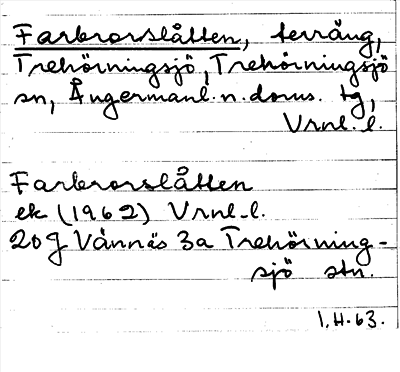 Farbrorslåtten, terräng,
Trehörningsjö, Trehörningsjö
sn, Ångermanl.n.doms. tg,
Vrnl.l.
Farbrorslåtten
ek (1962) Vrnl.l.
20 J Vännäs 3a Trehörning-
sjö stn.
1.H.63.